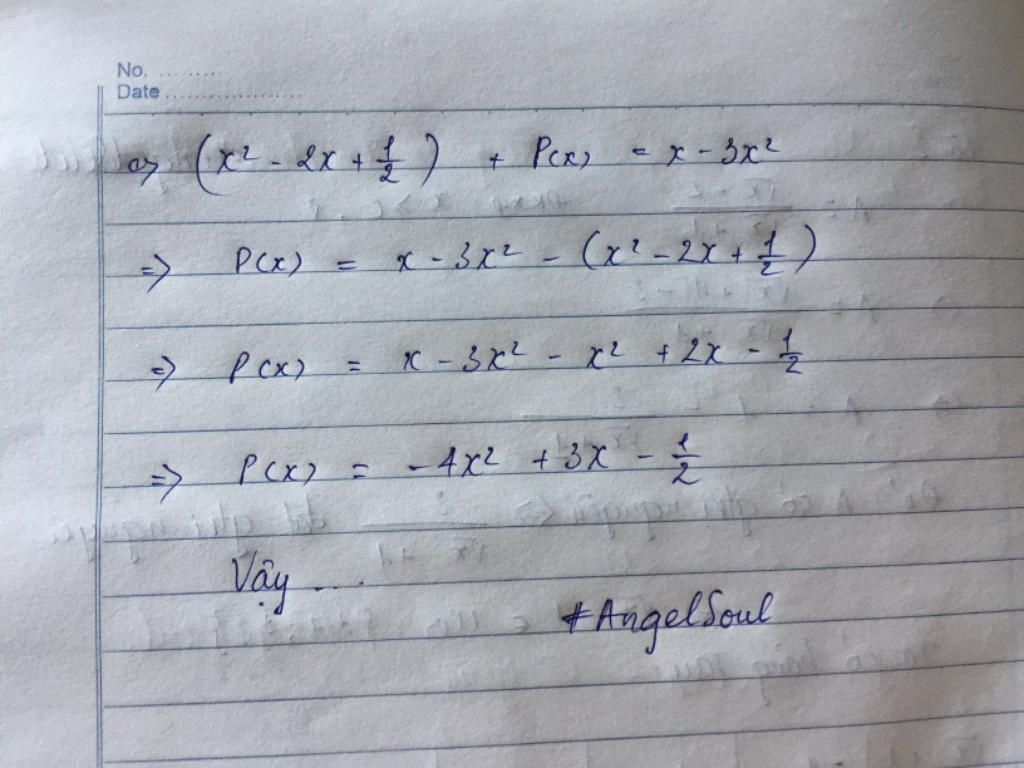 No. ........
Date ...................
=> (x² - 2x + 1/2) + P(x) = x - 3x²
=> P(x) = x - 3x² - (x² - 2x + 1/2)
=> P(x) = x - 3x² - x² + 2x - 1/2
=> P(x) = -4x² + 3x - 1/2
Vậy ....
#AngelSoul